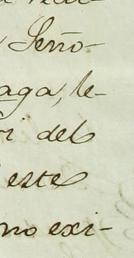 Seño-
aga, le-
ri del
este
no exi-